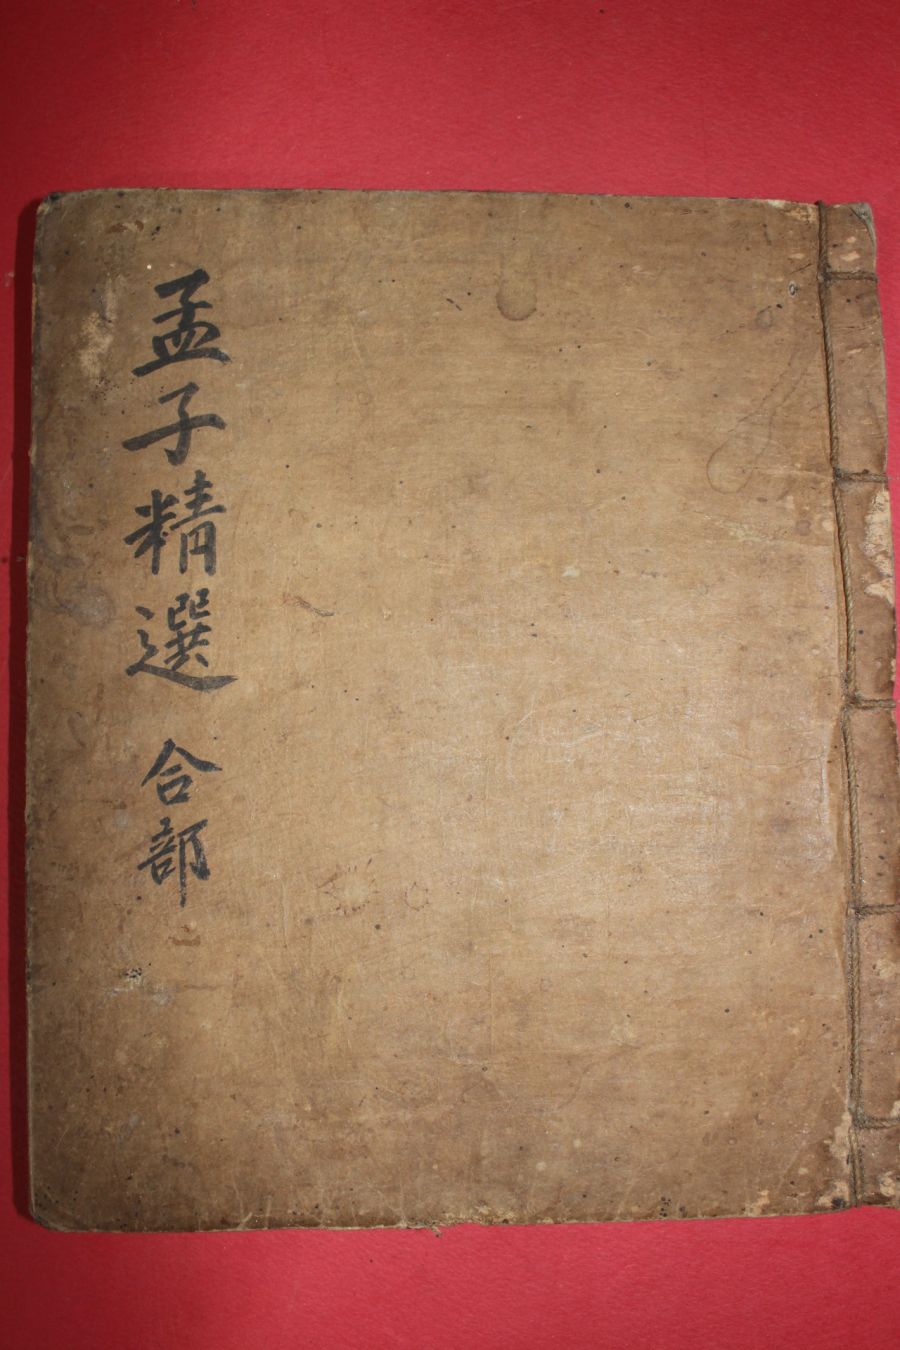 孟子精選 合部